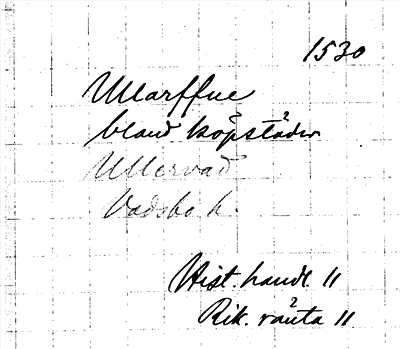 1530
Ullarffue
bland köpstäder
Ullervad
Vadsbo h.
Hist. handl. 11
Rik. ränta 11